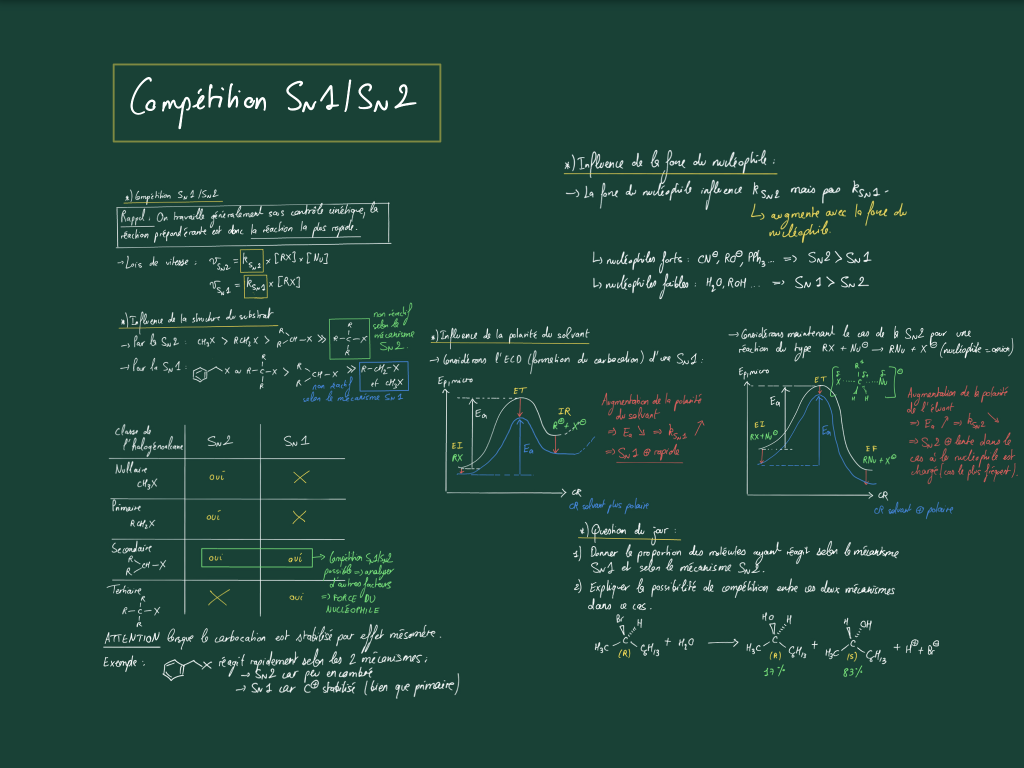 Compétition SN1/SN2
*) Compétition SN1/SN2
Rappel : On travaille généralement sous contrôle cinétique, la
réaction prépondérante est donc la réaction la plus rapide.
→ Lois de vitesse : v_SN2 = k_SN1 × [RX] × [Nu]
v_SN1 = k_SN1 × [RX]
*) Influence de la structure du substrat
→ Par la SN2 : CH3X > RCH2X > R R CH-X >> R-C-X R R
non réactif
selon le
mécanisme
SN2.
→ Par la SN1 : X ou R-C-X R R > R R CH-X >> R-CH2-X
et CH3X
non réactif
selon le mécanisme SN1
Classe de
l'halogénoalcane
SN2
SN1
Nullaire
CH3X
oui
Primaire
RCH2X
oui
Secondaire
R R CH-X
oui
oui
→ Compétition SN1/SN2
possible => analyser
d'autres facteurs
=> FORCE DU
NUCLÉOPHILE
Tertiaire
R-C-X R R
oui
ATTENTION lorsque le carbocation est stabilisé par effet mésomère.
Exemple : X réagit rapidement selon les 2 mécanismes :
→ SN2 car peu encombré
→ SN1 car C⊕ stabilisé (bien que primaire)
*) Influence de la force du nucléophile :
→ La force du nucléophile influence k_SN2 mais pas k_SN1.
↳ augmente avec la force du
nucléophile.
↳ nucléophiles forts : CN⊖, RO⊖, PPh3... => SN2 > SN1
↳ nucléophiles faibles : H2O, ROH ... => SN1 > SN2
*) Influence de la polarité du solvant
→ Considérons l'ECD (formation du carbocation) d'une SN1 :
Ep, micro
ET
Ea
IR
R⊕ + X⊖
EI
RX
Ea
CR
CR solvant plus polaire
Augmentation de la polarité
du solvant
=> Ea ↘ => k_SN1 ↗
=> SN1 ⊕ rapide
→ Considérons maintenant le cas de la SN2 pour une
réaction du type RX + Nu⊖ → RNu + X⊖ (nucléophile = anion)
Ep, micro
ET
Ea
EI
RX + Nu⊖
Ea
EF
RNu + X⊖
CR
CR solvant ⊕ polaire
Augmentation de la polarité
de l'éluant
=> Ea ↗ => k_SN2 ↘
=> SN2 ⊕ lente dans le
cas où le nucléophile est
chargé (cas le plus fréquent).
*) Question du jour :
1) Donner la proportion des molécules ayant réagit selon le mécanisme
SN1 et selon le mécanisme SN2.
2) Expliquer la possibilité de compétition entre ces deux mécanismes
dans ce cas.
Br H H3C C C6H13 + H2O → HO H H3C C C6H13 + H OH H3C C C6H13 + H⊕ + Br⊖
(R) (R) (S)
17% 83%